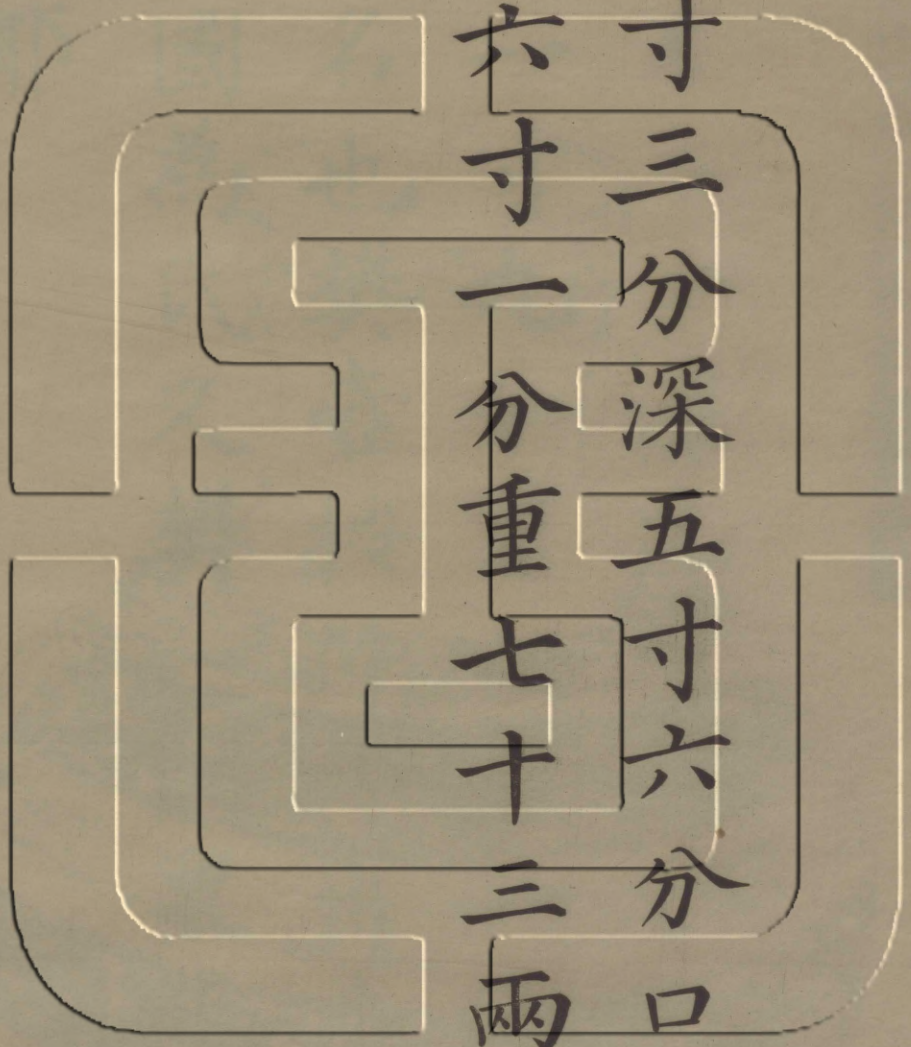 寸三分深五寸六分口
六寸一分重七十三兩